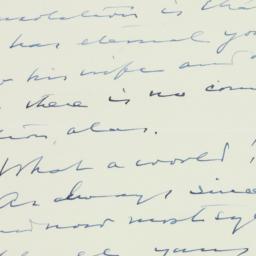 solation is tha
has eternal yo
his wife and
there is no con
tion, alas.
What a world!
As always since
and now most sy
yours